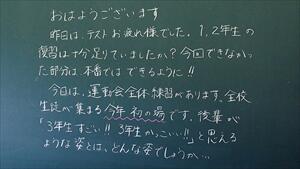 おはようございます
昨日は、テストお疲れ様でした。1,2年生の
復習は十分足りていましたか?今回できなかっ
た部分は、本番ではできるように!!
今日は、運動会全体練習があります。全校
生徒が集まる今年初の場です。後輩が
「3年生すごい!! 3年生かっこいい!!」と思える
ような姿とは、どんな姿でしょうか…